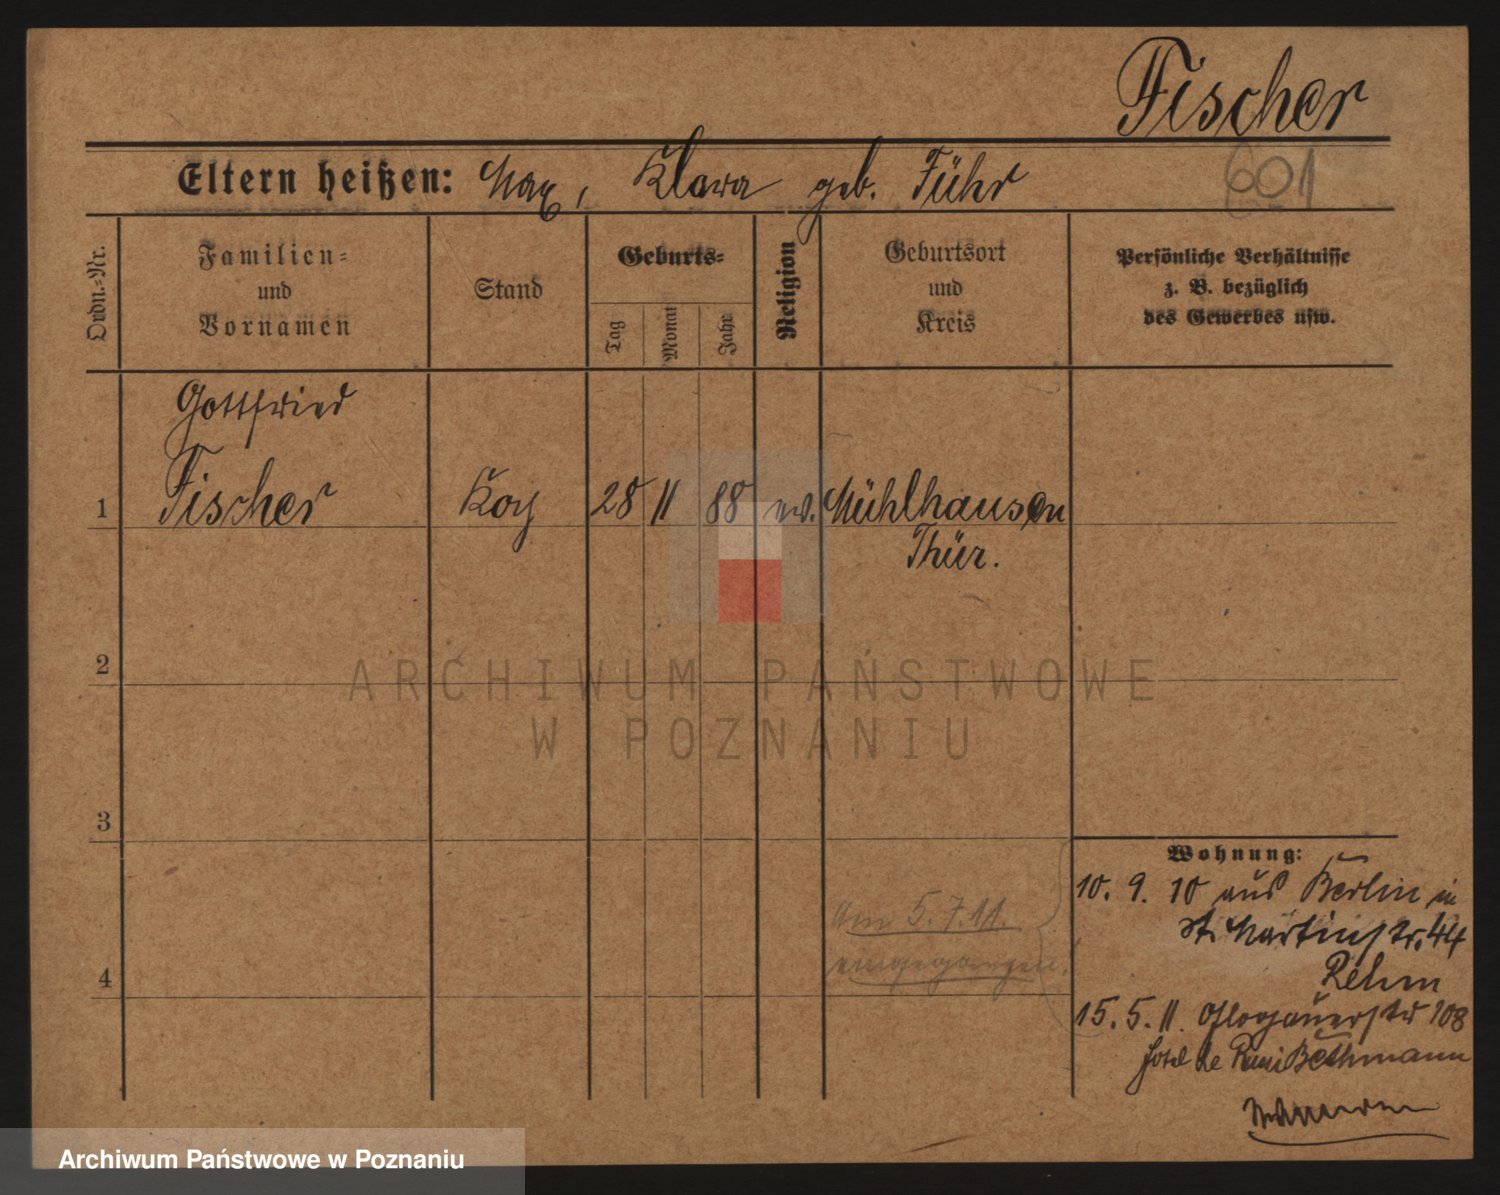 Fischer
Eltern heißen: Max, Klara geb. Führ
601
Ordn.-Nr.
Familien-
und
Vornamen
Stand
Geburts-
Tag
Monat
Jahr
Religion
Geburtsort
und
Kreis
Persönliche Verhältnisse
z. B. bezüglich
des Gewerbes usw.
Gottfried
1 Fischer Koch 28 11 88 ev. Mühlhausen
Thür.
2
3
4
Wohnung:
10. 9. 10 aus Berlin in
St. Martinstr. 44
Rehm
Am 5.7.11.
eingegangen.
15. 5. 11. Glogauerstr 108
Hotel de Bethmann
ARCHIWUM PAŃSTWOWE
W POZNANIU
Archiwum Państwowe w Poznaniu